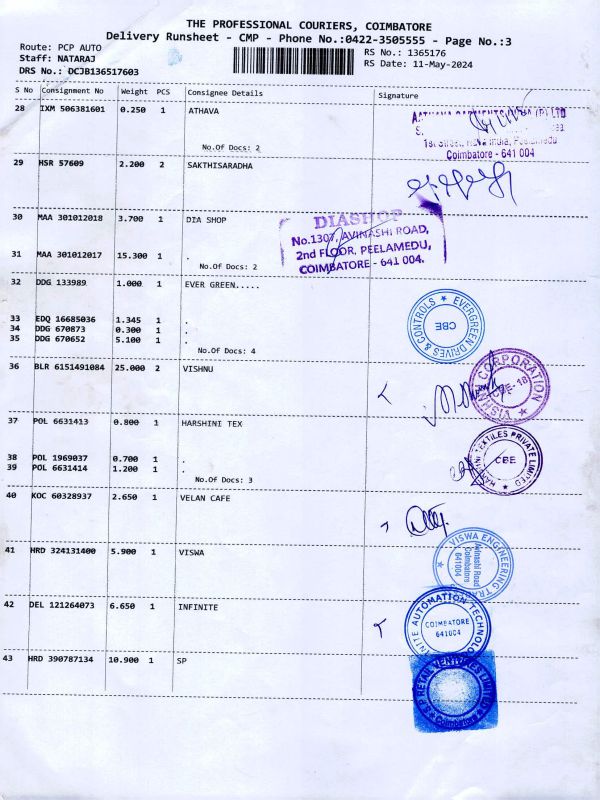 THE PROFESSIONAL COURIERS, COIMBATORE
Delivery Runsheet - CMP - Phone No.:0422-3505555 - Page No.:3
Route: PCP AUTO
RS No.: 1365176
Staff: NATARAJ
RS Date: 11-May-2024
DRS No.: OCJB136517603
S No Consignment No Weight PCS Consignee Details Signature
28 IXM 506381601 0.250 1 ATHAVA
No.Of Docs: 2
1st Street, Nava India, Peelamedu
Coimbatore - 641 004
29 HSR 57609 2.200 2 SAKTHISARADHA
30 MAA 301012018 3.700 1 DIA SHOP
DIASHOP
No.1307, AVINASHI ROAD,
2nd FLOOR, PEELAMEDU,
COIMBATORE - 641 004.
31 MAA 301012017 15.300 1 .
No.Of Docs: 2
32 DDG 133989 1.000 1 EVER GREEN.....
EVERGREEN DRIVES & CONTROLS
CBE
33 EDQ 16685036 1.345 1 .
34 DDG 670873 0.300 1 .
35 DDG 670652 5.100 1 .
No.Of Docs: 4
36 BLR 6151491084 25.000 2 VISHNU
VISHNU CORPORATION
CBE-18
37 POL 6631413 0.800 1 HARSHINI TEX
HARSHINI TEXTILES PRIVATE LIMITED
CBE
38 POL 1969037 0.700 1 .
39 POL 6631414 1.200 1 .
No.Of Docs: 3
40 KOC 60328937 2.650 1 VELAN CAFE
41 HRD 324131400 5.900 1 VISWA
VISWA ENGINEERING
Avinashi Road
Coimbatore
641004
42 DEL 121264073 6.650 1 INFINITE
AUTOMATION
COIMBATORE
641004
43 HRD 390787134 10.900 1 SP
RETAIL VENTURES LIMITED
Coimbatore